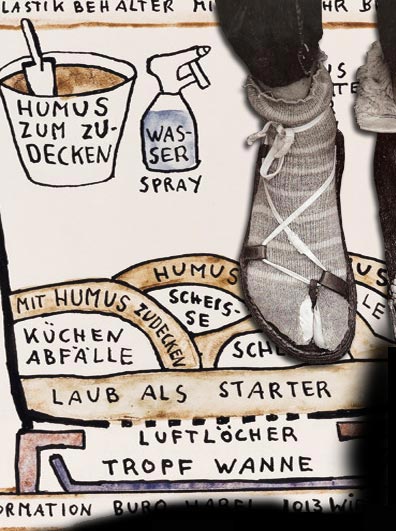 LASTIK BEHÄLTER MI HR B
HUMUS
ZUM ZU-
DECKEN
WAS-
SER
SPRAY
HUMUS
MIT HUMUS ZUDECKEN
SCHEIS-
SE
KÜCHEN
ABFÄLLE
LAUB ALS STARTER
LUFTLÖCHER
TROPF WANNE
ORMATION BÜRO HAREL 1013 WIE